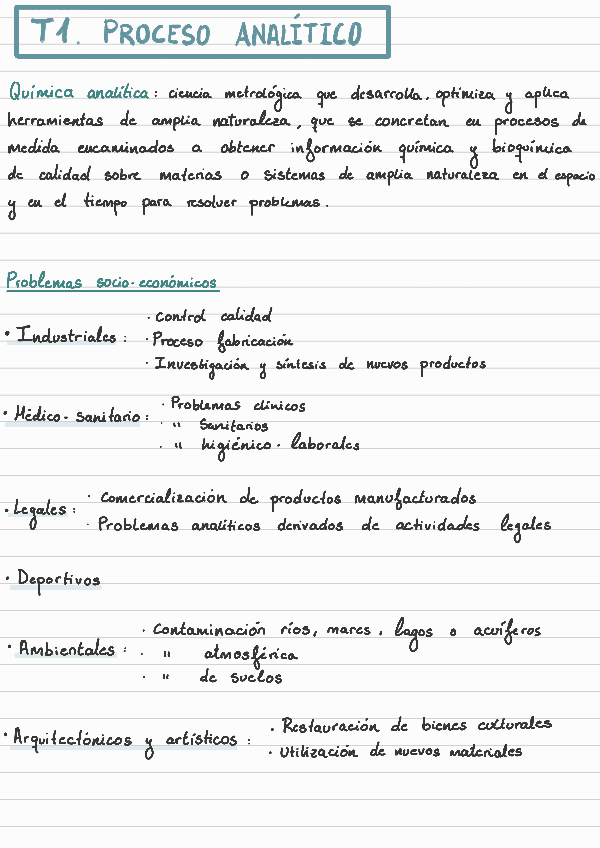 T1. PROCESO ANALÍTICO
Química analítica: ciencia metrológica que desarrolla, optimiza y aplica
herramientas de amplia naturaleza, que se concretan en procesos de
medida encaminados a obtener información química y bioquímica
de calidad sobre materias o sistemas de amplia naturaleza en el espacio
y en el tiempo para resolver problemas.
Problemas socio-económicos
· Industriales:
· Control calidad
· Proceso fabricación
· Investigación y síntesis de nuevos productos
· Médico-sanitario:
· Problemas clínicos
· " Sanitarios
· " higiénico-laborales
· Legales:
· Comercialización de productos manufacturados
· Problemas analíticos derivados de actividades legales
· Deportivos
· Ambientales:
· Contaminación ríos, mares, lagos o acuíferos
· " atmosférica
· " de suelos
· Arquitectónicos y artísticos:
· Restauración de bienes culturales
· Utilización de nuevos materiales